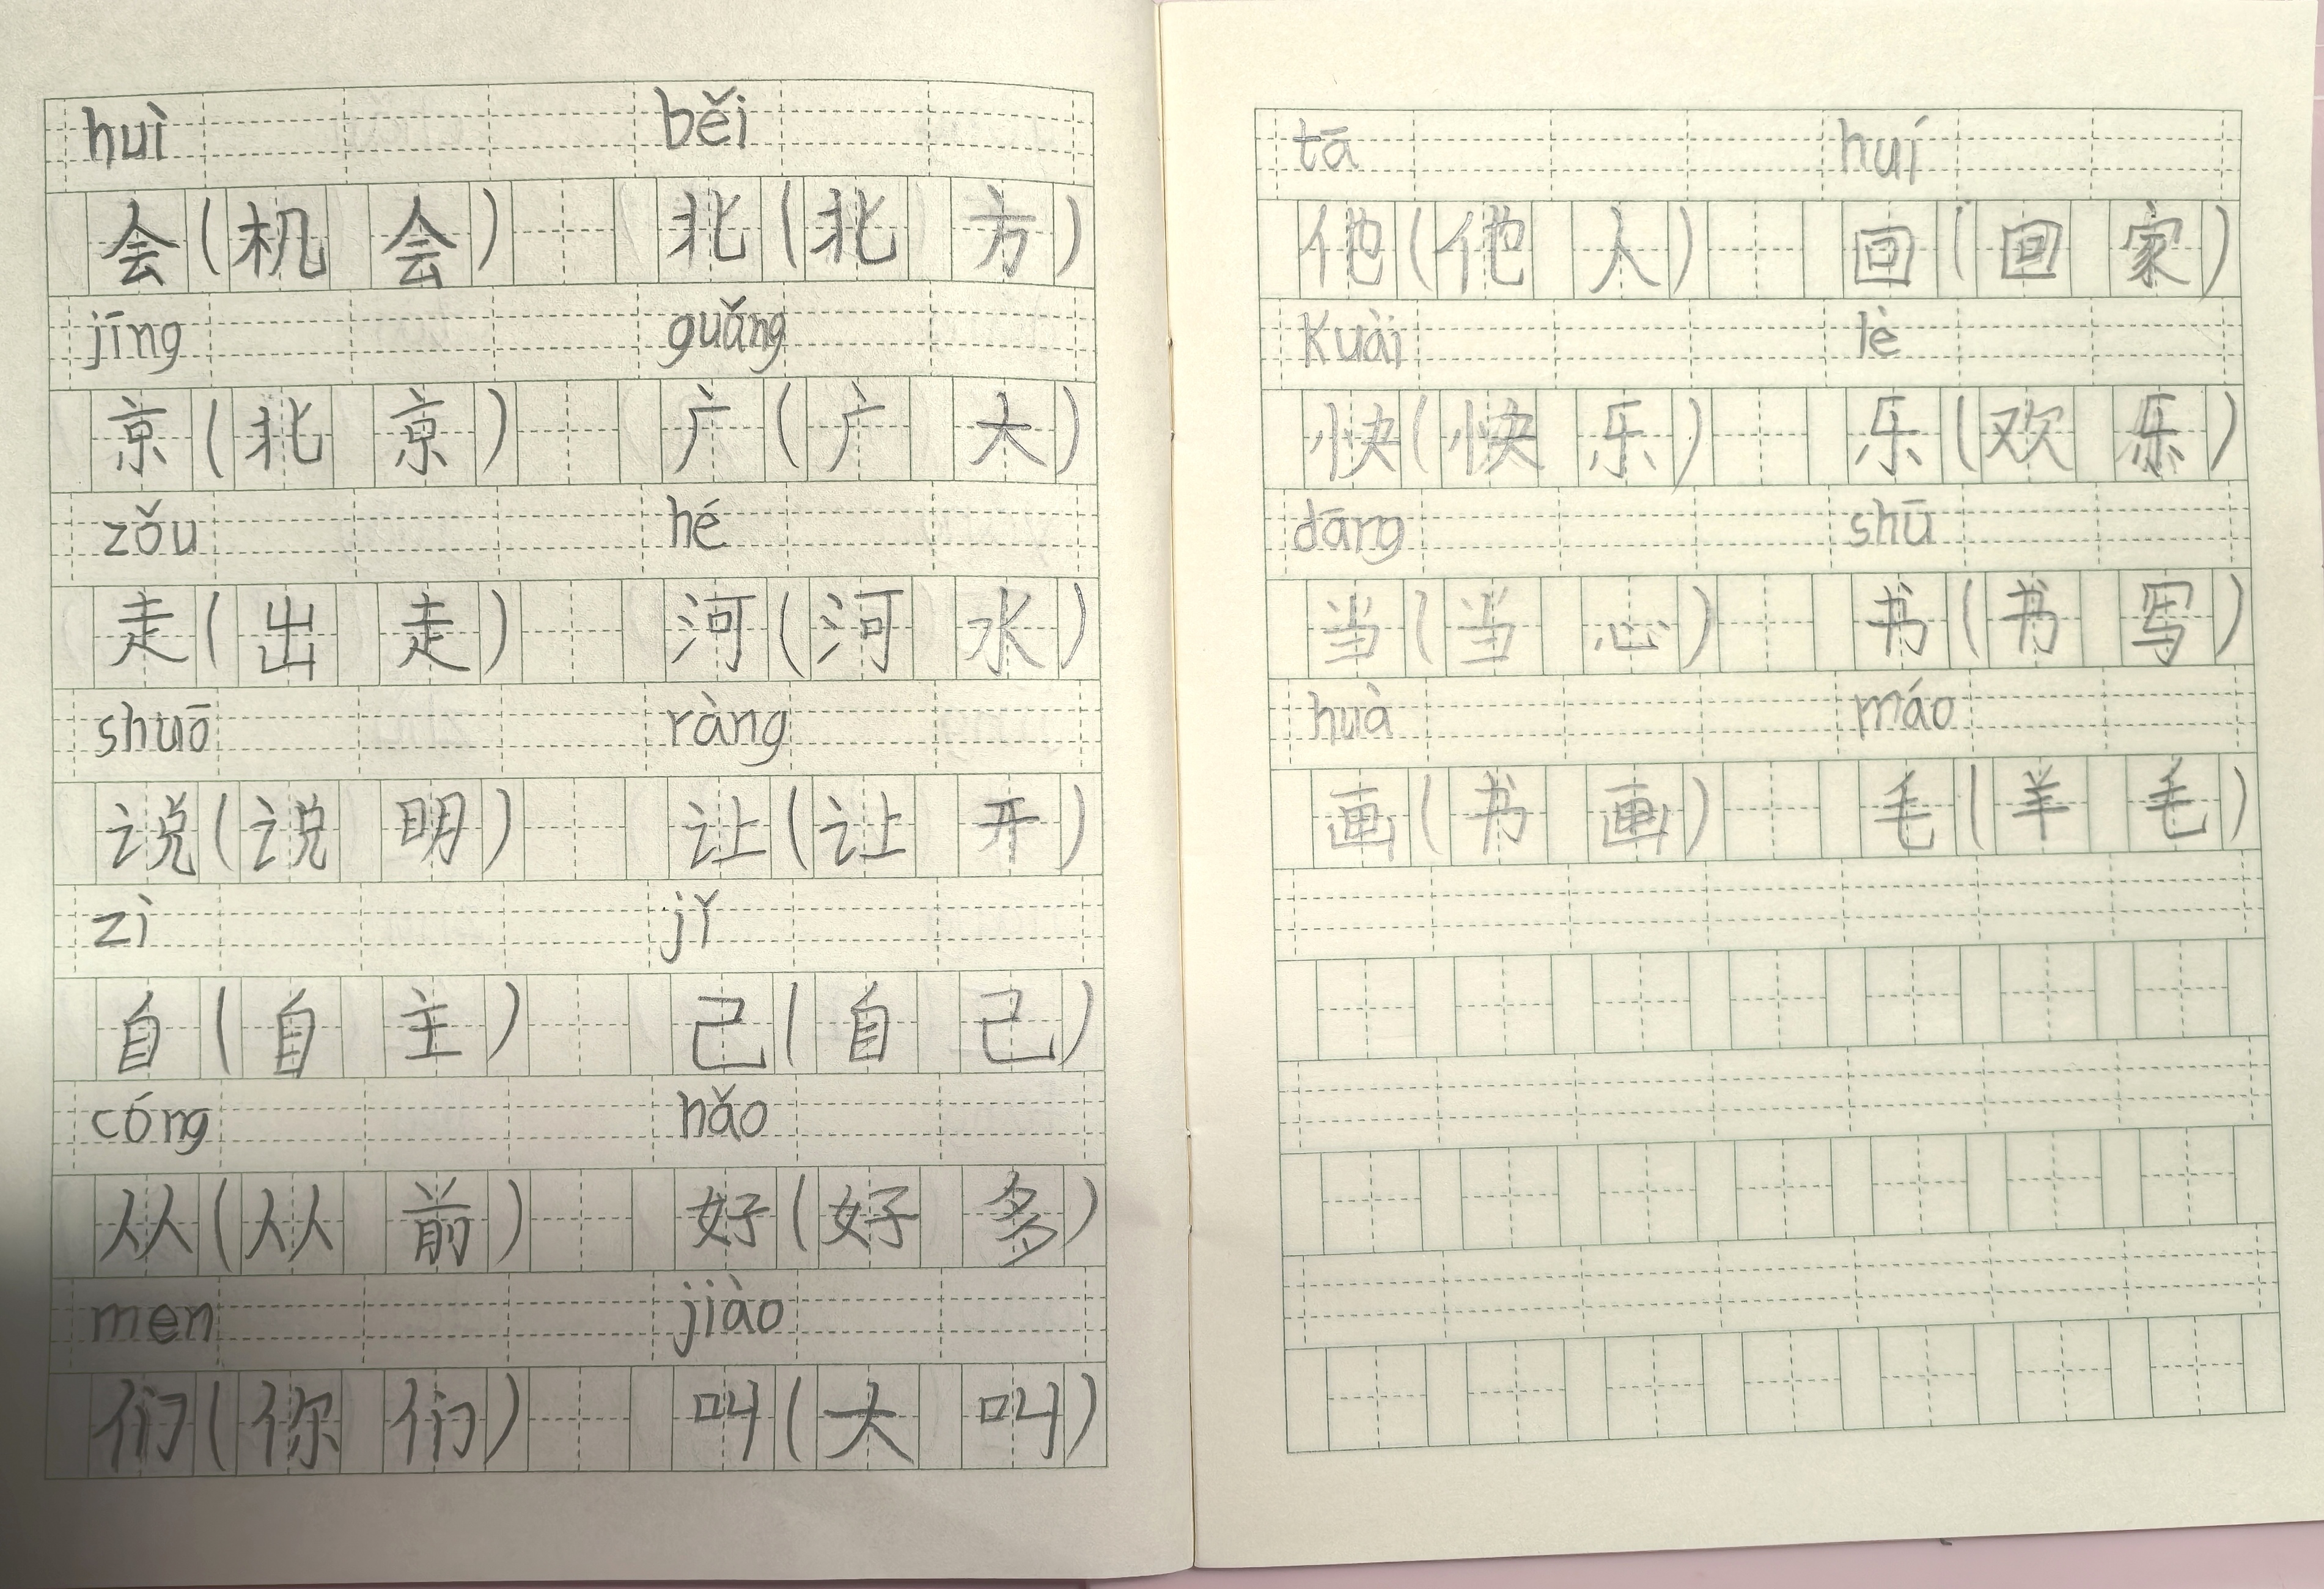 huì běi
会(机会) 北(北方)
jīng guǎng
京(北京) 广(广大)
zǒu hé
走(出走) 河(河水)
shuō ràng
说(说明) 让(让开)
zì jǐ
自(自主) 己(自己)
cóng hǎo
从(从前) 好(好多)
men jiào
们(你们) 叫(大叫)
tā huí
他(他人) 回(回家)
kuài lè
快(快乐) 乐(欢乐)
dāng shū
当(当心) 书(书写)
huà máo
画(书画) 毛(羊毛)